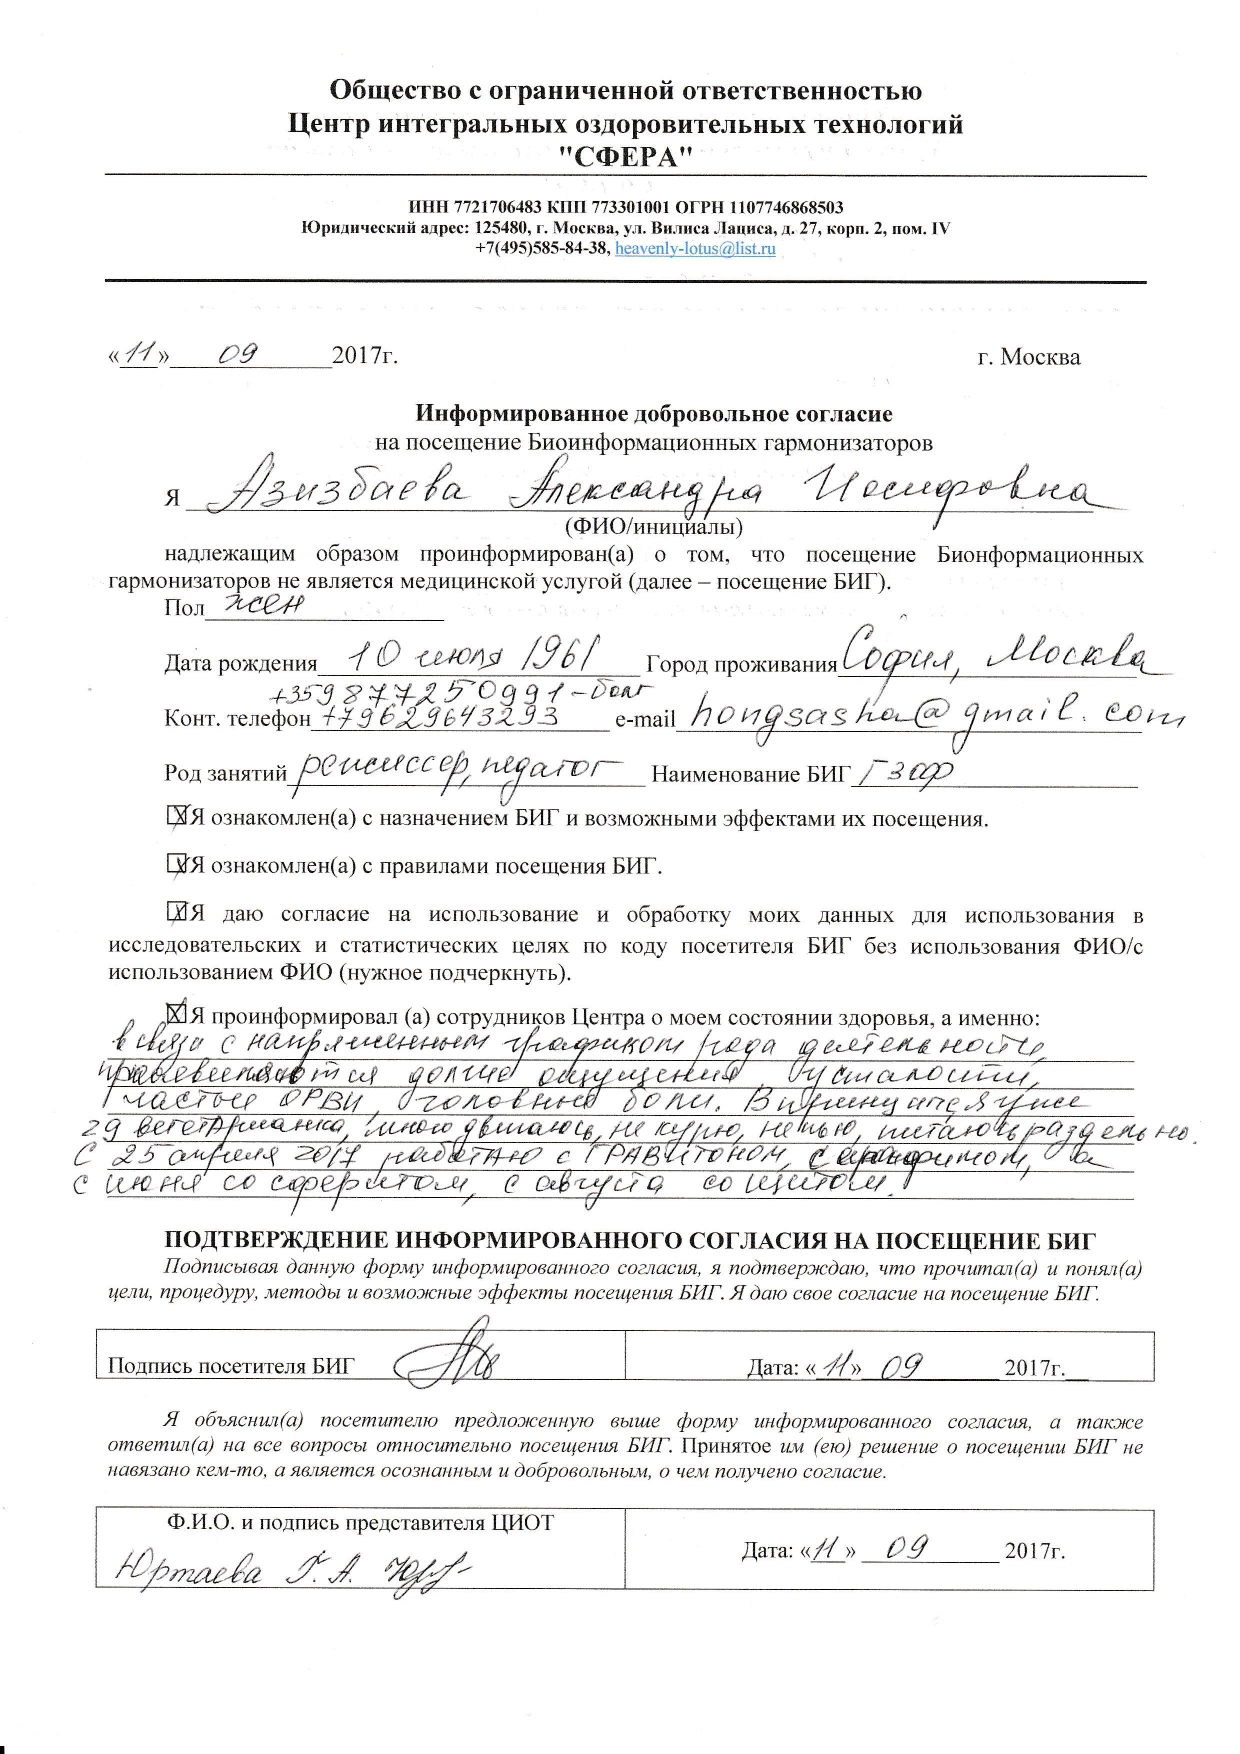 Общество с ограниченной ответственностью
Центр интегральных оздоровительных технологий
"СФЕРА"
ИНН 7721706483 КПП 773301001 ОГРН 1107746868503
Юридический адрес: 125480, г. Москва, ул. Вилиса Лациса, д. 27, корп. 2, пом. IV
+7(495)585-84-38, heavenly-lotus@list.ru
«11» 09 2017г. г. Москва
Информированное добровольное согласие
на посещение Биоинформационных гармонизаторов
Я Азизбаева Александра Иосифовна
(ФИО/инициалы)
надлежащим образом проинформирован(а) о том, что посещение Бионформационных
гармонизаторов не является медицинской услугой (далее – посещение БИГ).
Пол жен
Дата рождения 10 июля 1961 Город проживания София, Москва
+359877250991-болг
Конт. телефон +79629643293 e-mail hongsasha@gmail.com
Род занятий режиссер, педагог Наименование БИГ ГЗОФ
Я ознакомлен(а) с назначением БИГ и возможными эффектами их посещения.
Я ознакомлен(а) с правилами посещения БИГ.
Я даю согласие на использование и обработку моих данных для использования в
исследовательских и статистических целях по коду посетителя БИГ без использования ФИО/с
использованием ФИО (нужное подчеркнуть).
Я проинформировал (а) сотрудников Центра о моем состоянии здоровья, а именно:
в связи с напряженным графиком рода деятельности,
долгие ощущения усталости,
частые ОРВИ, головные боли. В принципе я уже
29 вегетарианка, много двигаюсь, не курю, не пью, питаюсь раздельно.
С 25 апреля 2017 работаю с ГРАВИТОНОМ, с а
с июня со сферитом, с августа со щитом.
ПОДТВЕРЖДЕНИЕ ИНФОРМИРОВАННОГО СОГЛАСИЯ НА ПОСЕЩЕНИЕ БИГ
Подписывая данную форму информированного согласия, я подтверждаю, что прочитал(а) и понял(а)
цели, процедуру, методы и возможные эффекты посещения БИГ. Я даю свое согласие на посещение БИГ.
Подпись посетителя БИГ Дата: «11» 09 2017г.
Я объяснил(а) посетителю предложенную выше форму информированного согласия, а также
ответил(а) на все вопросы относительно посещения БИГ. Принятое им (ею) решение о посещении БИГ не
навязано кем-то, а является осознанным и добровольным, о чем получено согласие.
Ф.И.О. и подпись представителя ЦИОТ
Юртаева Г. А. Дата: «11 » 09 2017г.